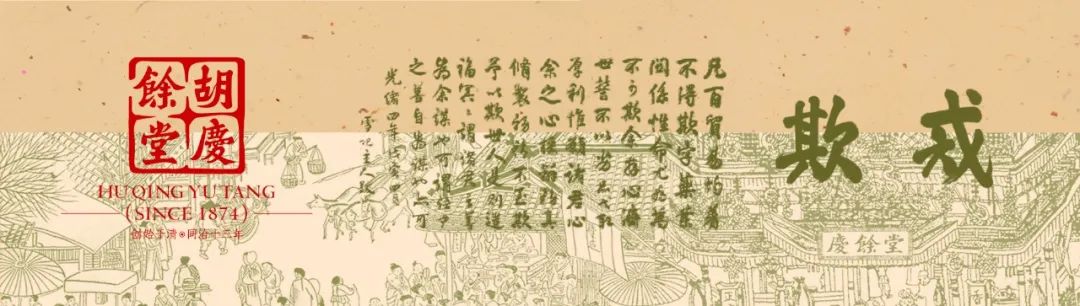 戒欺
凡百貿易均着
不得欺字藥業
關係性命尤為萬
不可欺余存心濟
世誓不以劣品弋取
厚利惟願諸君心
余之心採辦務真
脩製務精不至欺
予以欺世人是則造
福冥冥謂諸君之善
為余謀也可謂諸君
之善自為謀也亦可
光緒四年戊寅四月
雪記主人跋
胡慶
餘堂
HU QING YU TANG
(SINCE 1874)
创始于清®同治十三年
慶餘堂